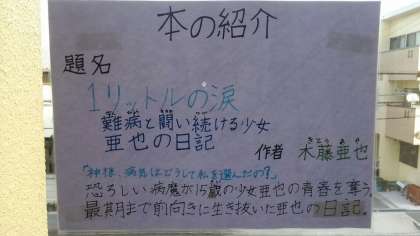 本の紹介
題名
1リットルの涙
難病と闘い続ける少女
亜也の日記
作者 木藤亜也
きとう あや
「神様、病気はどうして私を選んだの?」
恐ろしい病魔が15歳の少女亜也の青春を奪う。
最期まで前向きに生き抜いた亜也の日記。